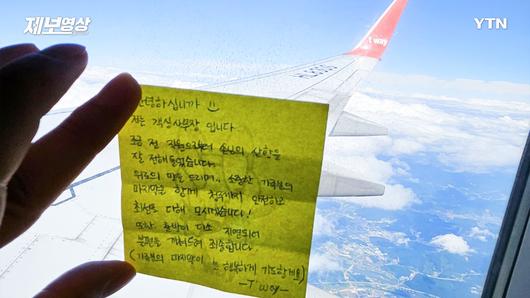 제보영상
YTN
t'way
HL8565
안녕하십니까
저는 객실사무장 입니다
조금 전 직원으로부터 손님의 상황을
잘 전해들었습니다.
위로의 말을 드리며, 소중한 가족분의
마지막을 함께 청주까지 안전하고
최선을 다해 모시겠습니다!
또한 출발이 다소 지연되어
불편을 끼쳐드려 죄송합니다
(가족분의 마지막이 행복하게 기도할게요)
-T'way-